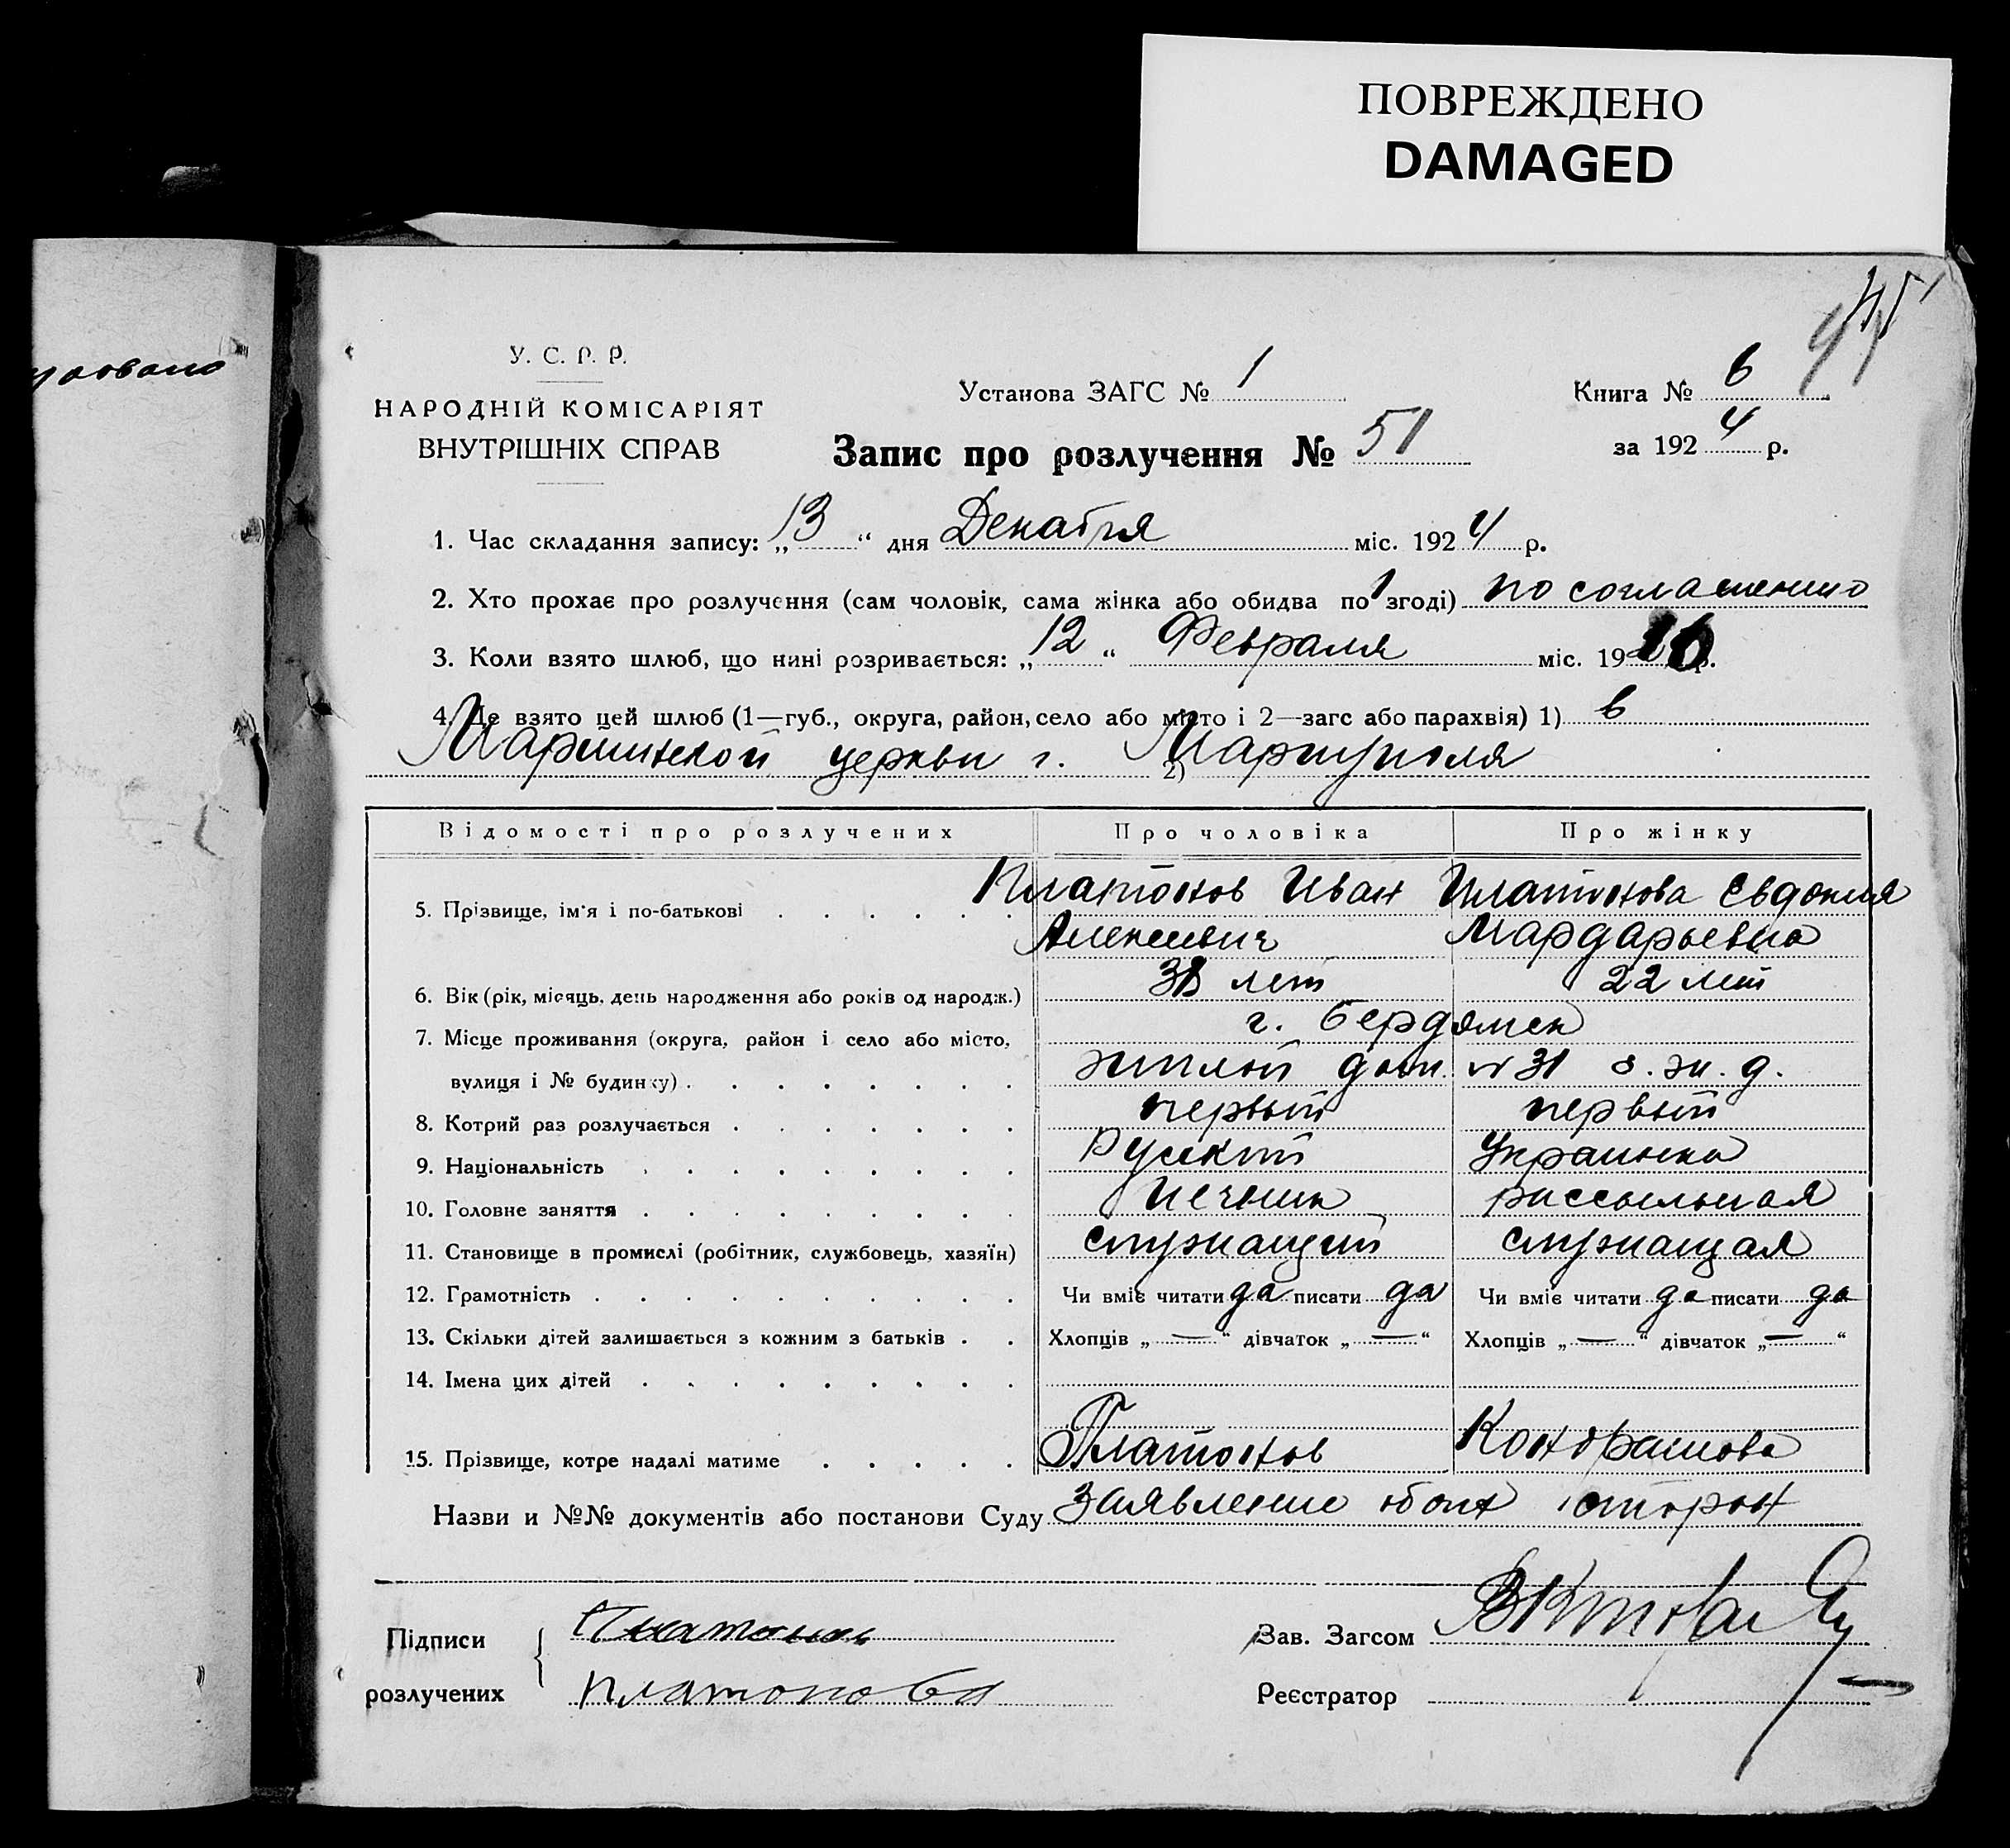 ПОВРЕЖДЕНО
DAMAGED
У. С. Р. Р.
НАРОДНІЙ КОМІСАРІЯТ
ВНУТРІШНІХ СПРАВ
Установа ЗАГС № 1
Книга № 6
за 1924 р.
Запис про розлучення № 51
1. Час складання запису: „13“ дня Декабря міс. 1924 р.
2. Хто прохає про розлучення (сам чоловік, сама жінка або обидва по згоді) по соглашению
3. Коли взято шлюб, що нині розривається: „12“ Февраля міс. 19 р.
4. Де взято цей шлюб (1—губ., округа, район, село або місто і 2—загс або парахвія) 1) в
Мариинской церкви г. 2) Мариуполя
Відомості про розлучених Про чоловіка Про жінку
5. Прізвище, ім'я і по-батькові Платонов Иван Платонова Евдокия
Алексеевич Мардарьевна
6. Вік (рік, місяць, день народження або років од народж.) 38 лет 22 лет
7. Місце проживання (округа, район і село або місто, г. Бердянск
вулиця і № будинку) жилой дом № 31 ж. д.
8. Котрий раз розлучається первый первый
9. Національність Русский Украинка
10. Головне заняття печник рассыльная
11. Становище в промислі (робітник, службовець, хазяїн) служащий служащая
12. Грамотність Чи вміє читати да писати да Чи вміє читати да писати да
13. Скільки дітей залишається з кожним з батьків Хлопців „—“ дівчаток „—“ Хлопців „—“ дівчаток „—“
14. Імена цих дітей
15. Прізвище, котре надалі матиме Платонов Кондрашова
Назви и №№ документів або постанови Суду Заявление обоих сторон
Підписи
розлучених
Платонов
Платонова
Зав. Загсом
Реєстратор